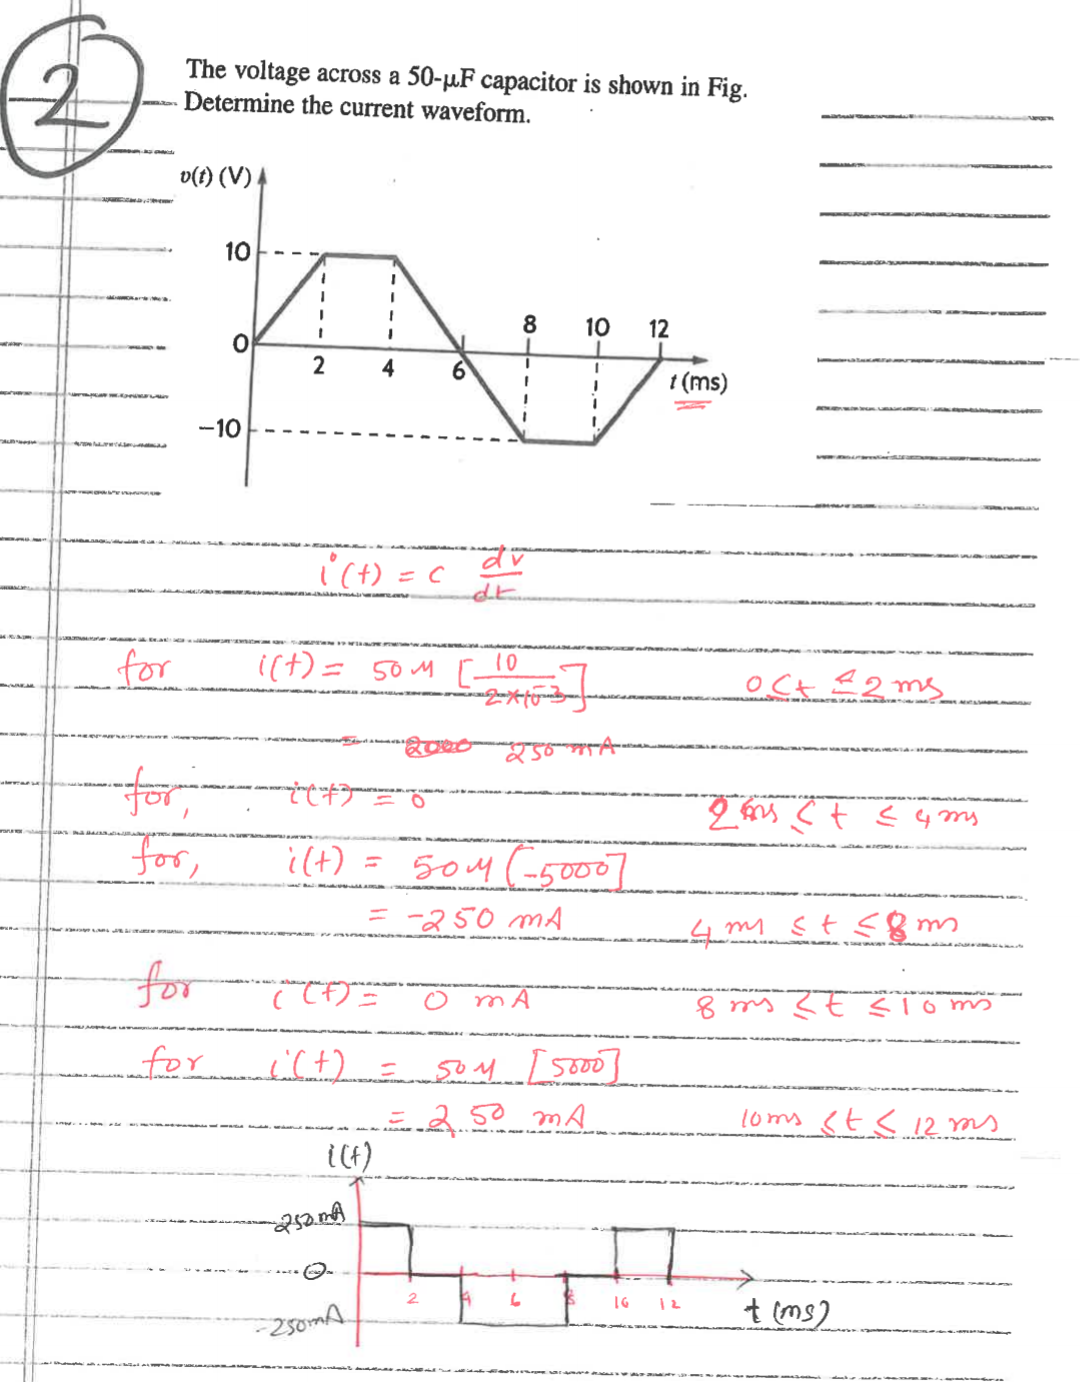 2
The voltage across a 50-μF capacitor is shown in Fig.
Determine the current waveform.
v(t) (V)
10
8 10 12
0
2 4 6
t (ms)
−10
i(t) = c dv/dt
for i(t) = 50 μ [10/2×10^-3] 0 ≤ t ≤ 2 ms
= 250 mA
for, i(t) = 0 2 ms ≤ t ≤ 4 ms
for, i(t) = 50 μ [-5000]
= -250 mA 4 ms ≤ t ≤ 8 ms
for i(t) = 0 mA 8 ms ≤ t ≤ 10 ms
for i(t) = 50 μ [5000]
= 250 mA 10 ms ≤ t ≤ 12 ms
i(t)
250 mA
0
2 4 6 8 10 12
t (ms)
-250 mA